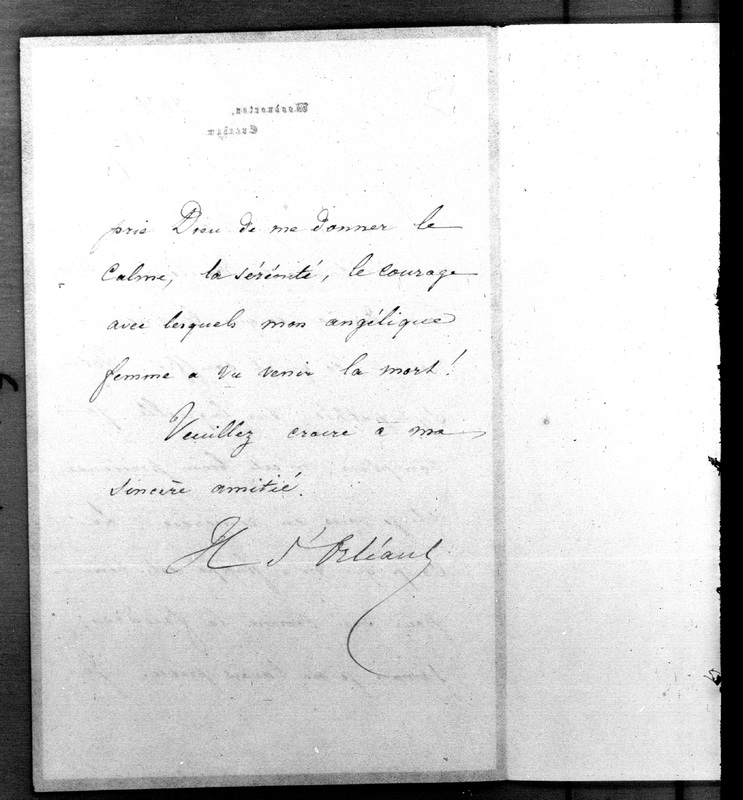 prie Dieu de me donner le
calme, la sérénité, le courage
avec lesquels mon angélique
femme a vu venir la mort!
Veuillez croire à ma
sincère amitié.
H d'Orléans